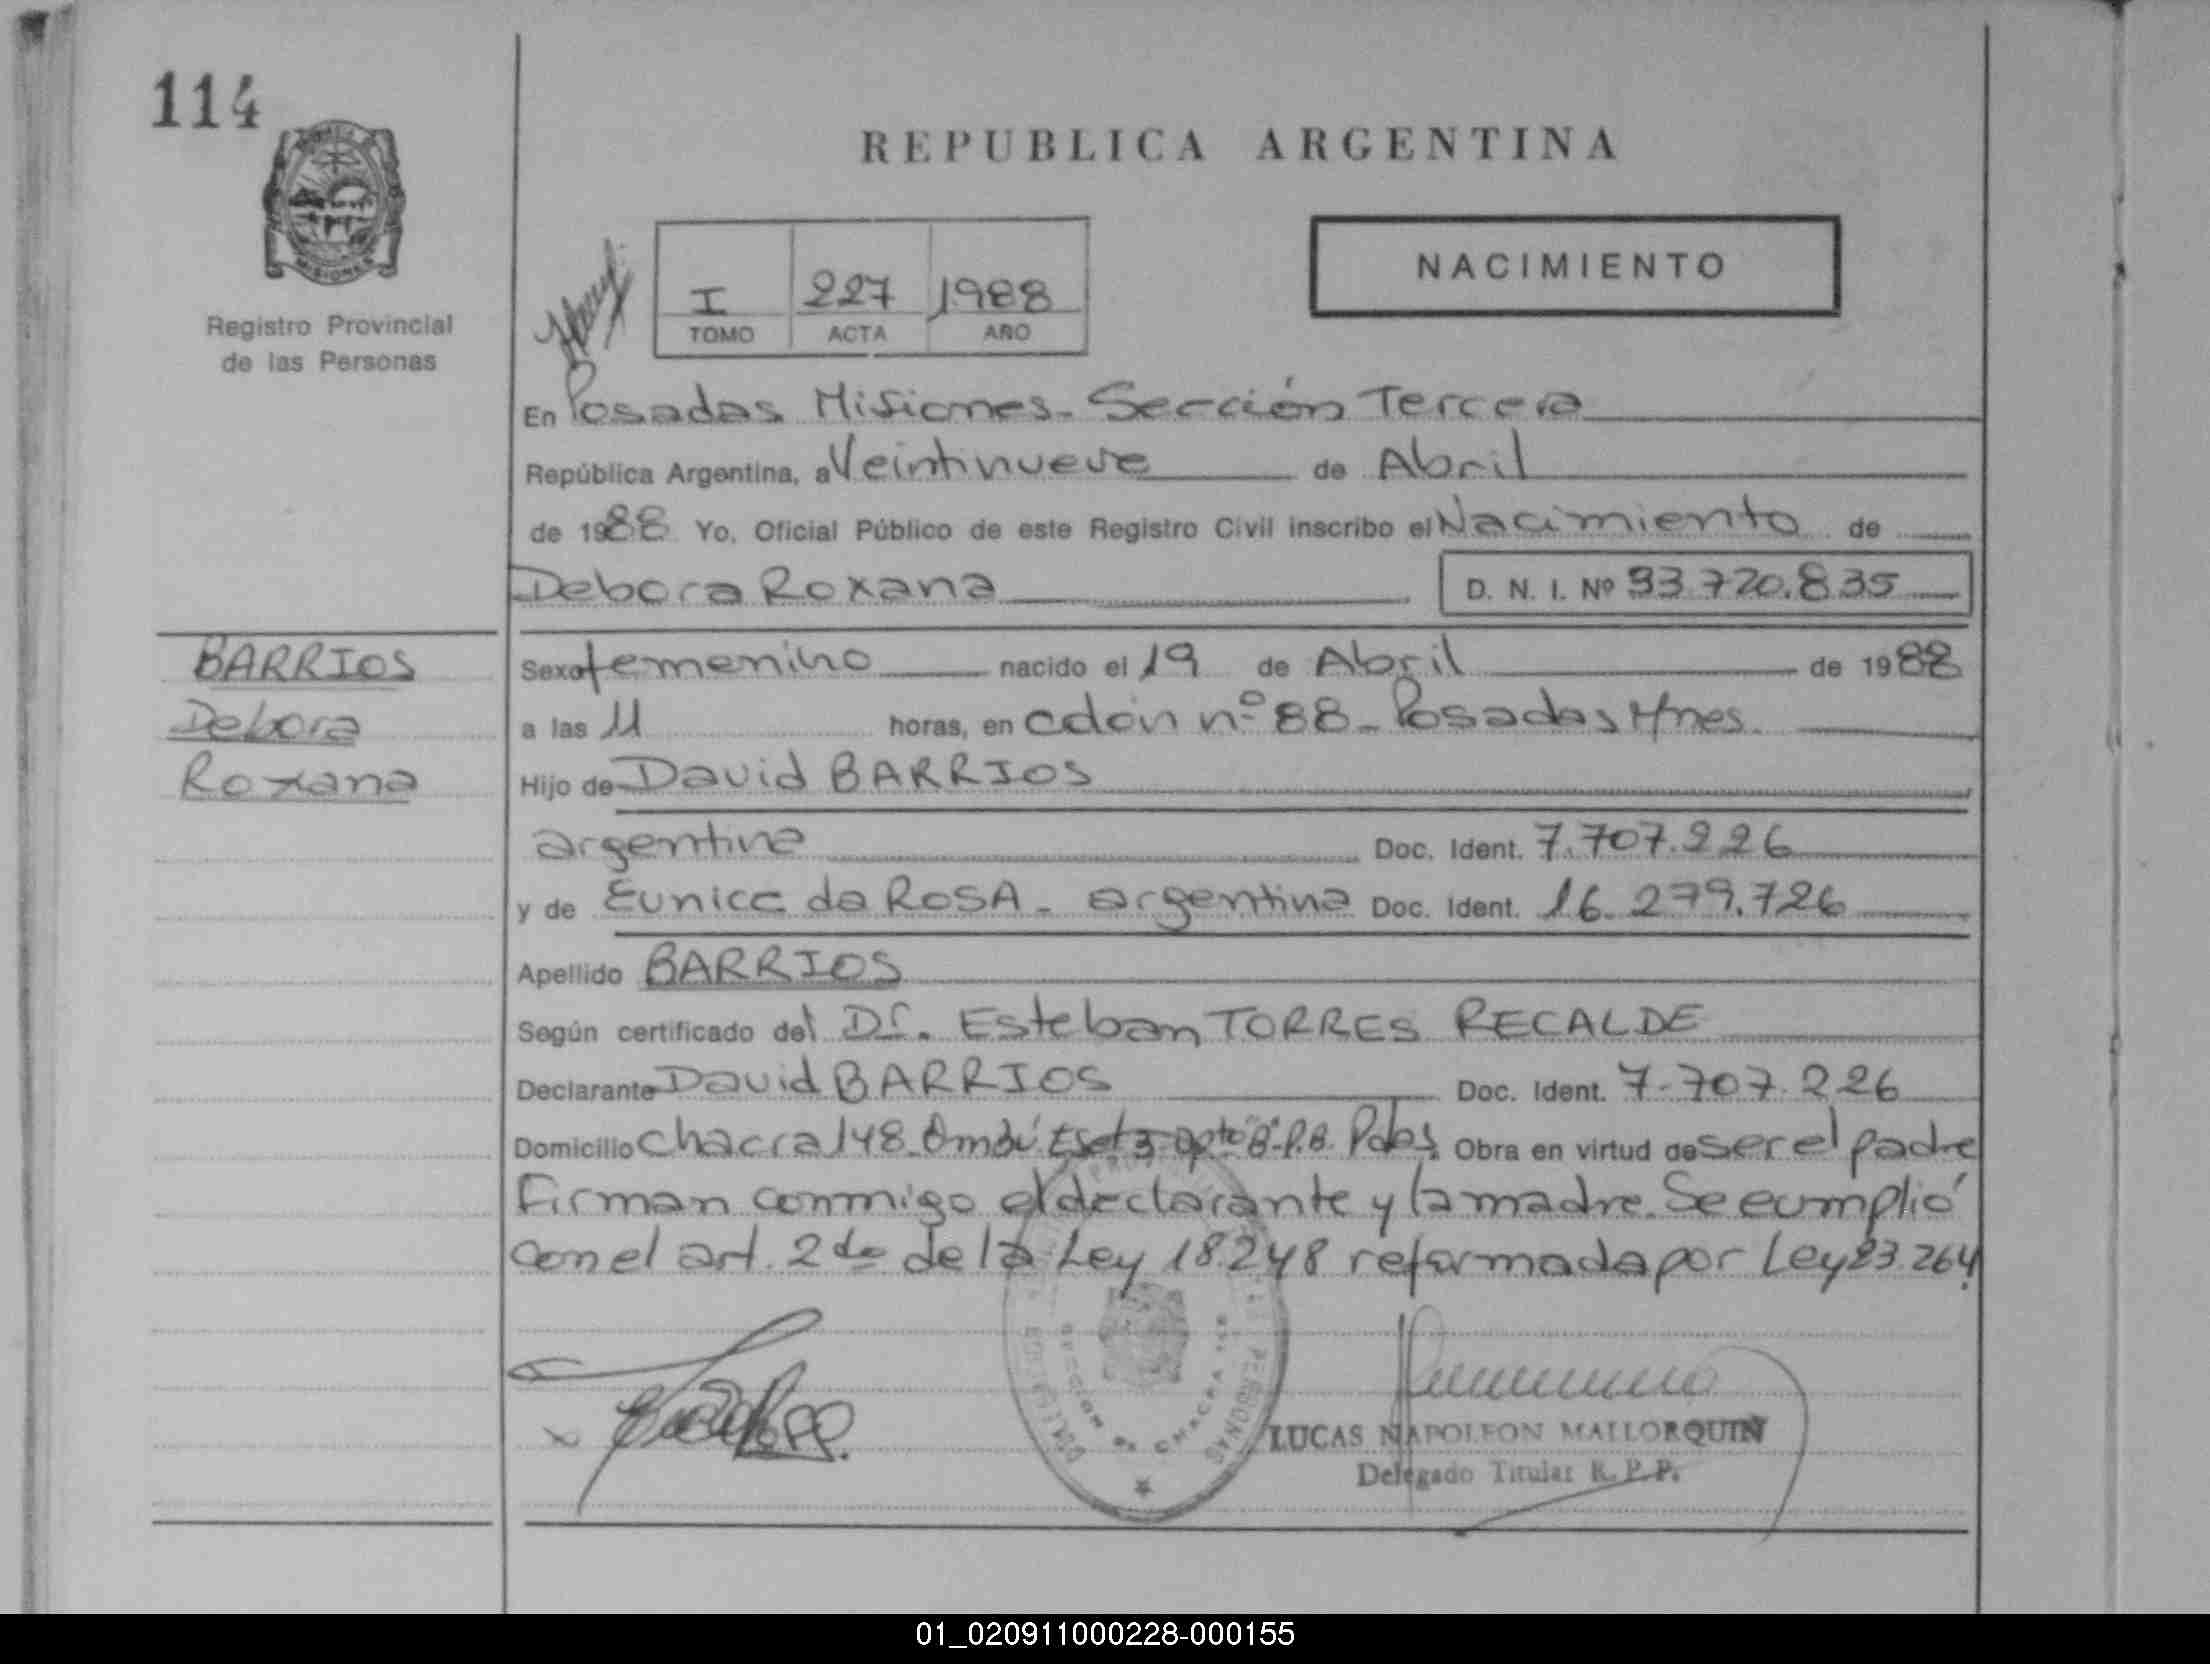 114
MISIONES
Registro Provincial
de las Personas
REPUBLICA ARGENTINA
I 227 1988
TOMO ACTA AÑO
NACIMIENTO
En Posadas Misiones - Sección Tercera
República Argentina, a Veintinueve de Abril
de 1988 Yo, Oficial Público de este Registro Civil inscribo el Nacimiento de
Debora Roxana D. N. I. Nº 33.720.835
BARRIOS
Debora
Roxana
Sexo femenino nacido el 19 de Abril de 1988
a las 11 horas, en cdón nº 88 - Posadas Mnes.
Hijo de David BARRIOS
argentina Doc. Ident. 7.707.226
y de Eunice da ROSA - argentina Doc. Ident. 16.279.726
Apellido BARRIOS
Según certificado del Dr. Esteban TORRES RECALDE
Declarante David BARRIOS Doc. Ident. 7.707.226
Domicilio Chacra 148 - Ombú Esc. 3 - dpto "B" - P.B. Pdas. Obra en virtud de ser el padre
Firman conmigo el declarante y la madre. Se cumplió
con el art. 2do de la Ley 18.248 reformada por Ley 23.264
LUCAS NAPOLEON MALLORQUIN
Delegado Titular R. P. P.
01_020911000228-000155